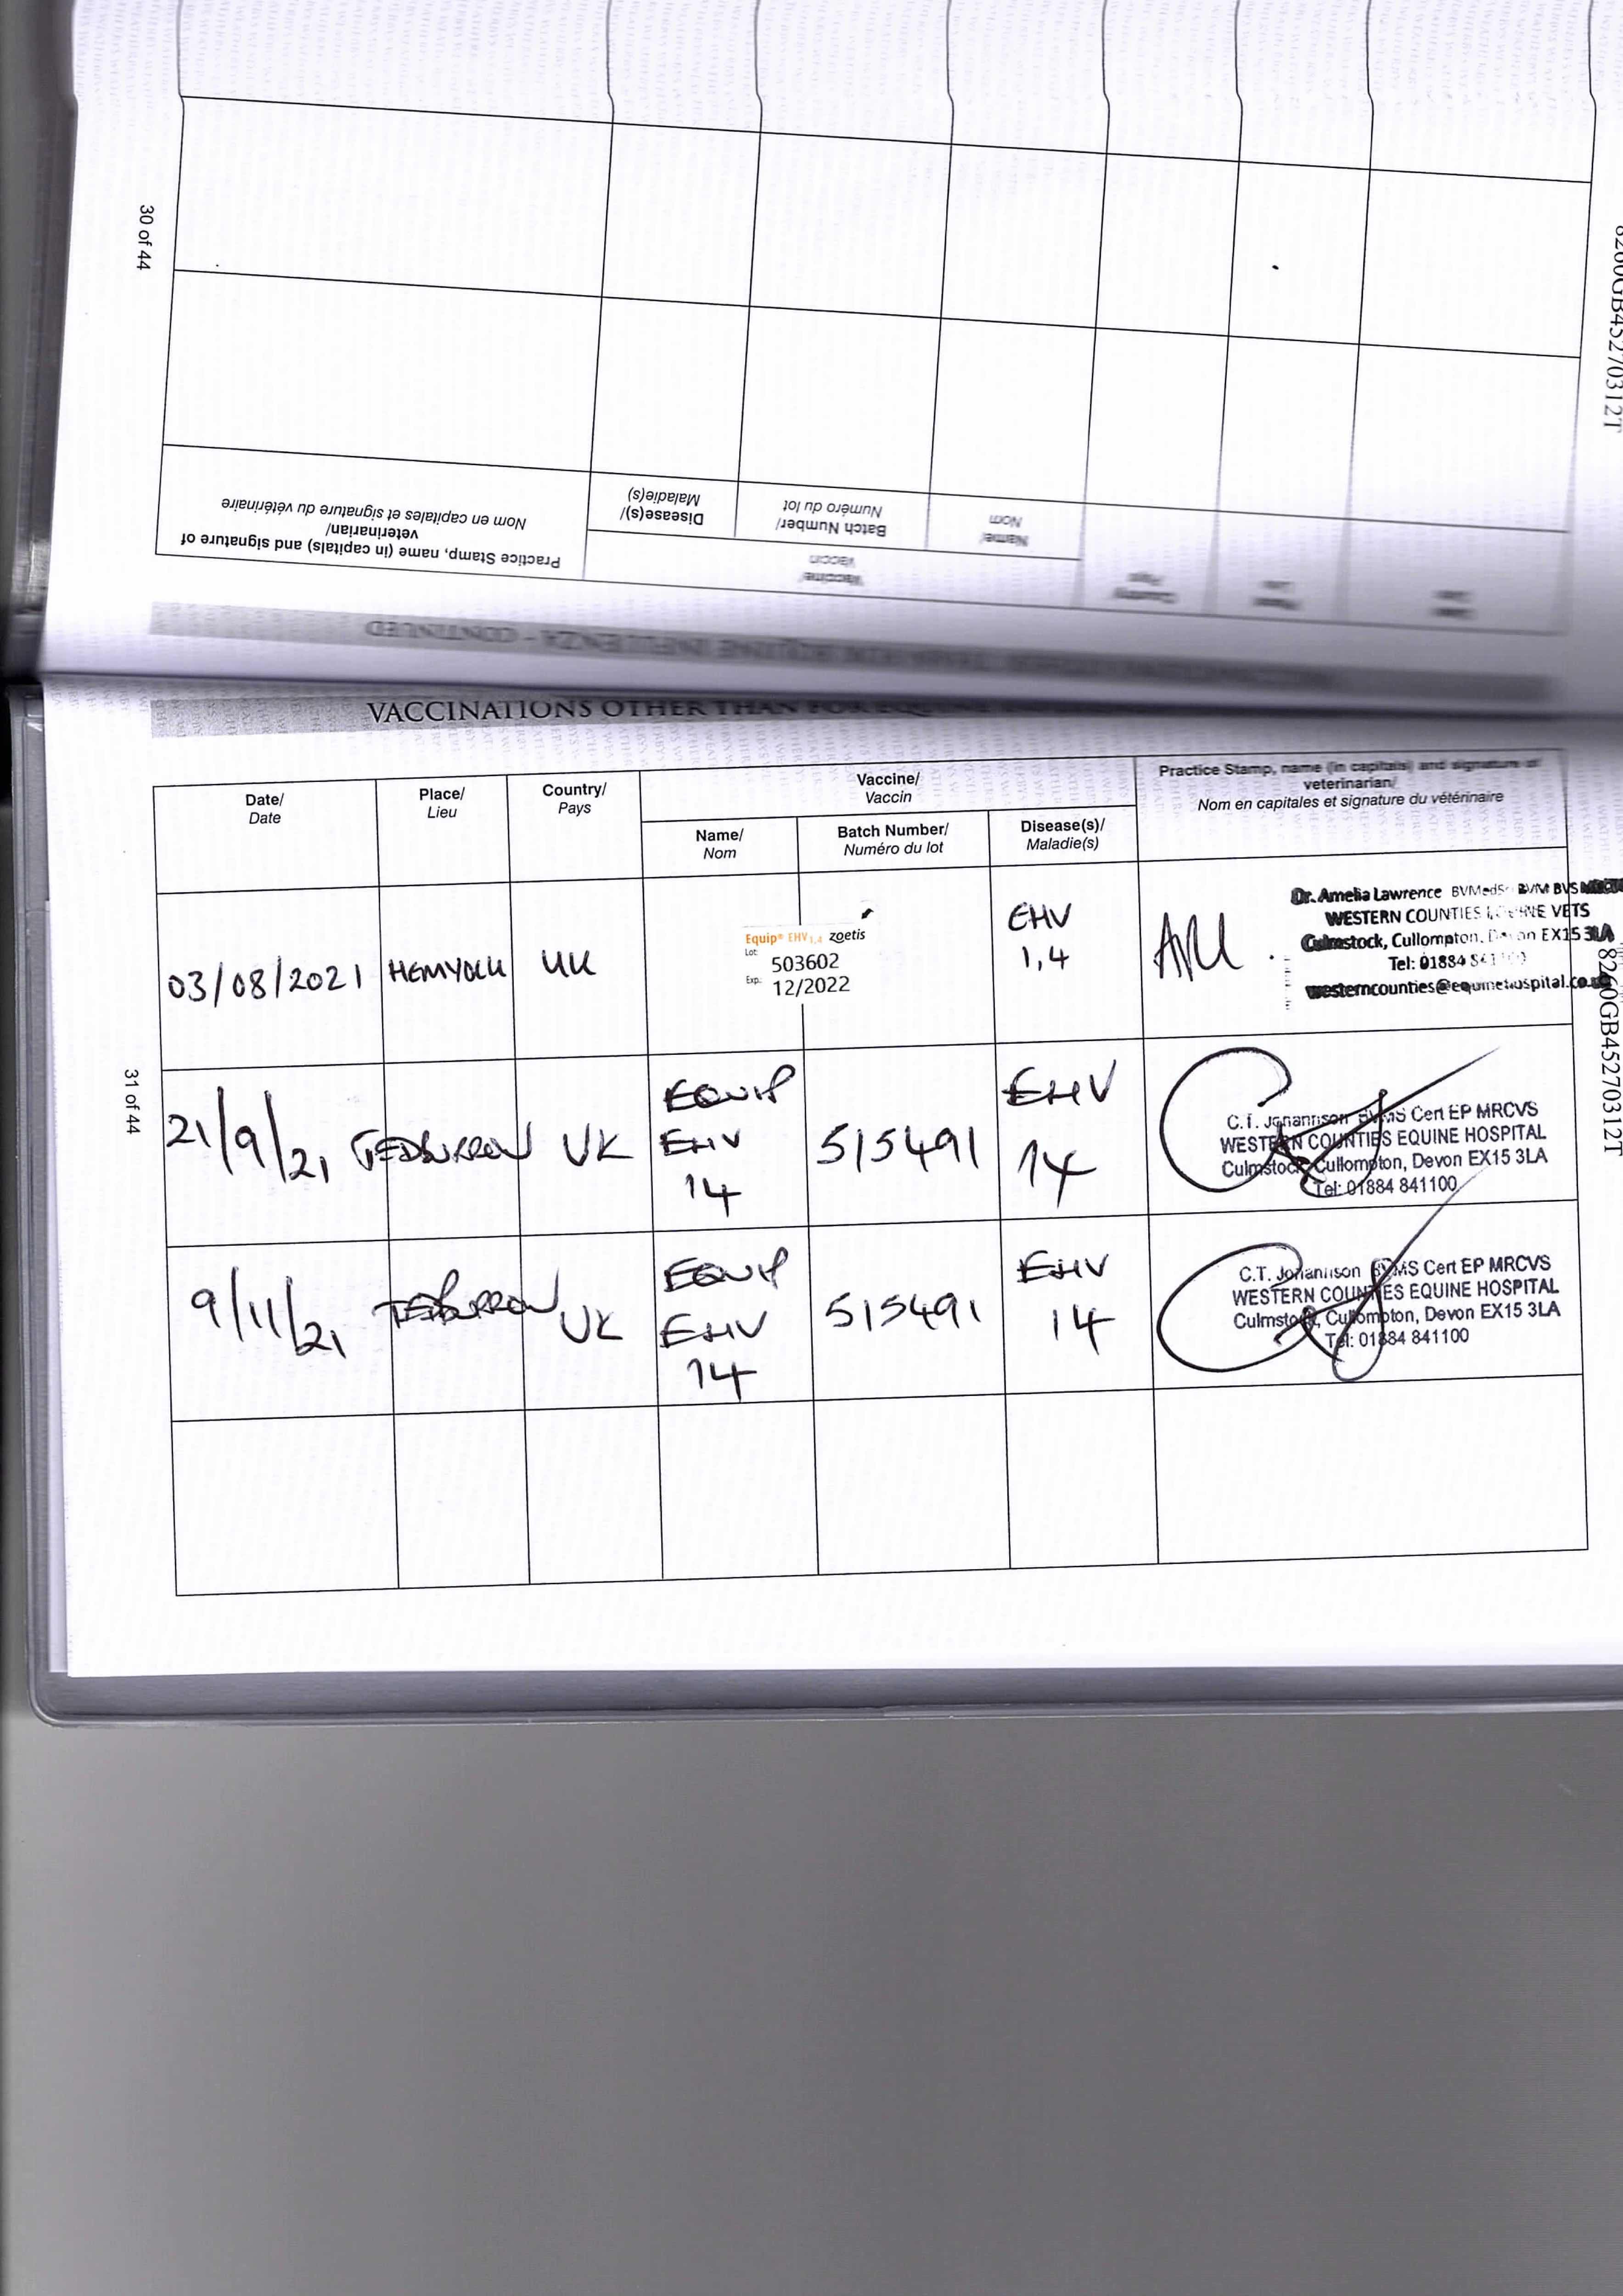 30 of 44
8260GB45270312T
Practice Stamp, name (in capitals) and signature of
veterinarian/
Nom en capitales et signature du vétérinaire
Disease(s)/
Maladie(s)
Batch Number/
Numéro du lot
Name/
Nom
Vaccine/
Vaccin
Country/
Pays
Place/
Lieu
Date/
Date
VACCINATIONS OTHER THAN FOR EQUINE INFLUENZA - CONTINUED
VACCINATIONS OTHER THAN FOR EQUINE
Date/
Date
Place/
Lieu
Country/
Pays
Vaccine/
Vaccin
Name/
Nom
Batch Number/
Numéro du lot
Disease(s)/
Maladie(s)
Practice Stamp, name (in capitals) and signature of
veterinarian/
Nom en capitales et signature du vétérinaire
03/08/2021
HEMYOCK
UK
Equip® EHV 1,4 zoetis
Lot: 503602
Exp: 12/2022
EHV
1,4
Dr. Amelia Lawrence BVMedSc BVM BVS
WESTERN COUNTIES EQUINE VETS
Culmstock, Cullompton, Devon EX15 3LA
Tel: 01884 841100
westerncounties@equinehospital.co.uk
21/9/21
UK
EQUIP
EHV
14
515491
EHV
14
C.T. Johannison BVMS Cert EP MRCVS
WESTERN COUNTIES EQUINE HOSPITAL
Culmstock, Cullompton, Devon EX15 3LA
Tel: 01884 841100
9/11/21
UK
EQUIP
EHV
14
515491
EHV
14
C.T. Johannison BVMS Cert EP MRCVS
WESTERN COUNTIES EQUINE HOSPITAL
Culmstock, Cullompton, Devon EX15 3LA
Tel: 01884 841100
31 of 44
8260GB45270312T